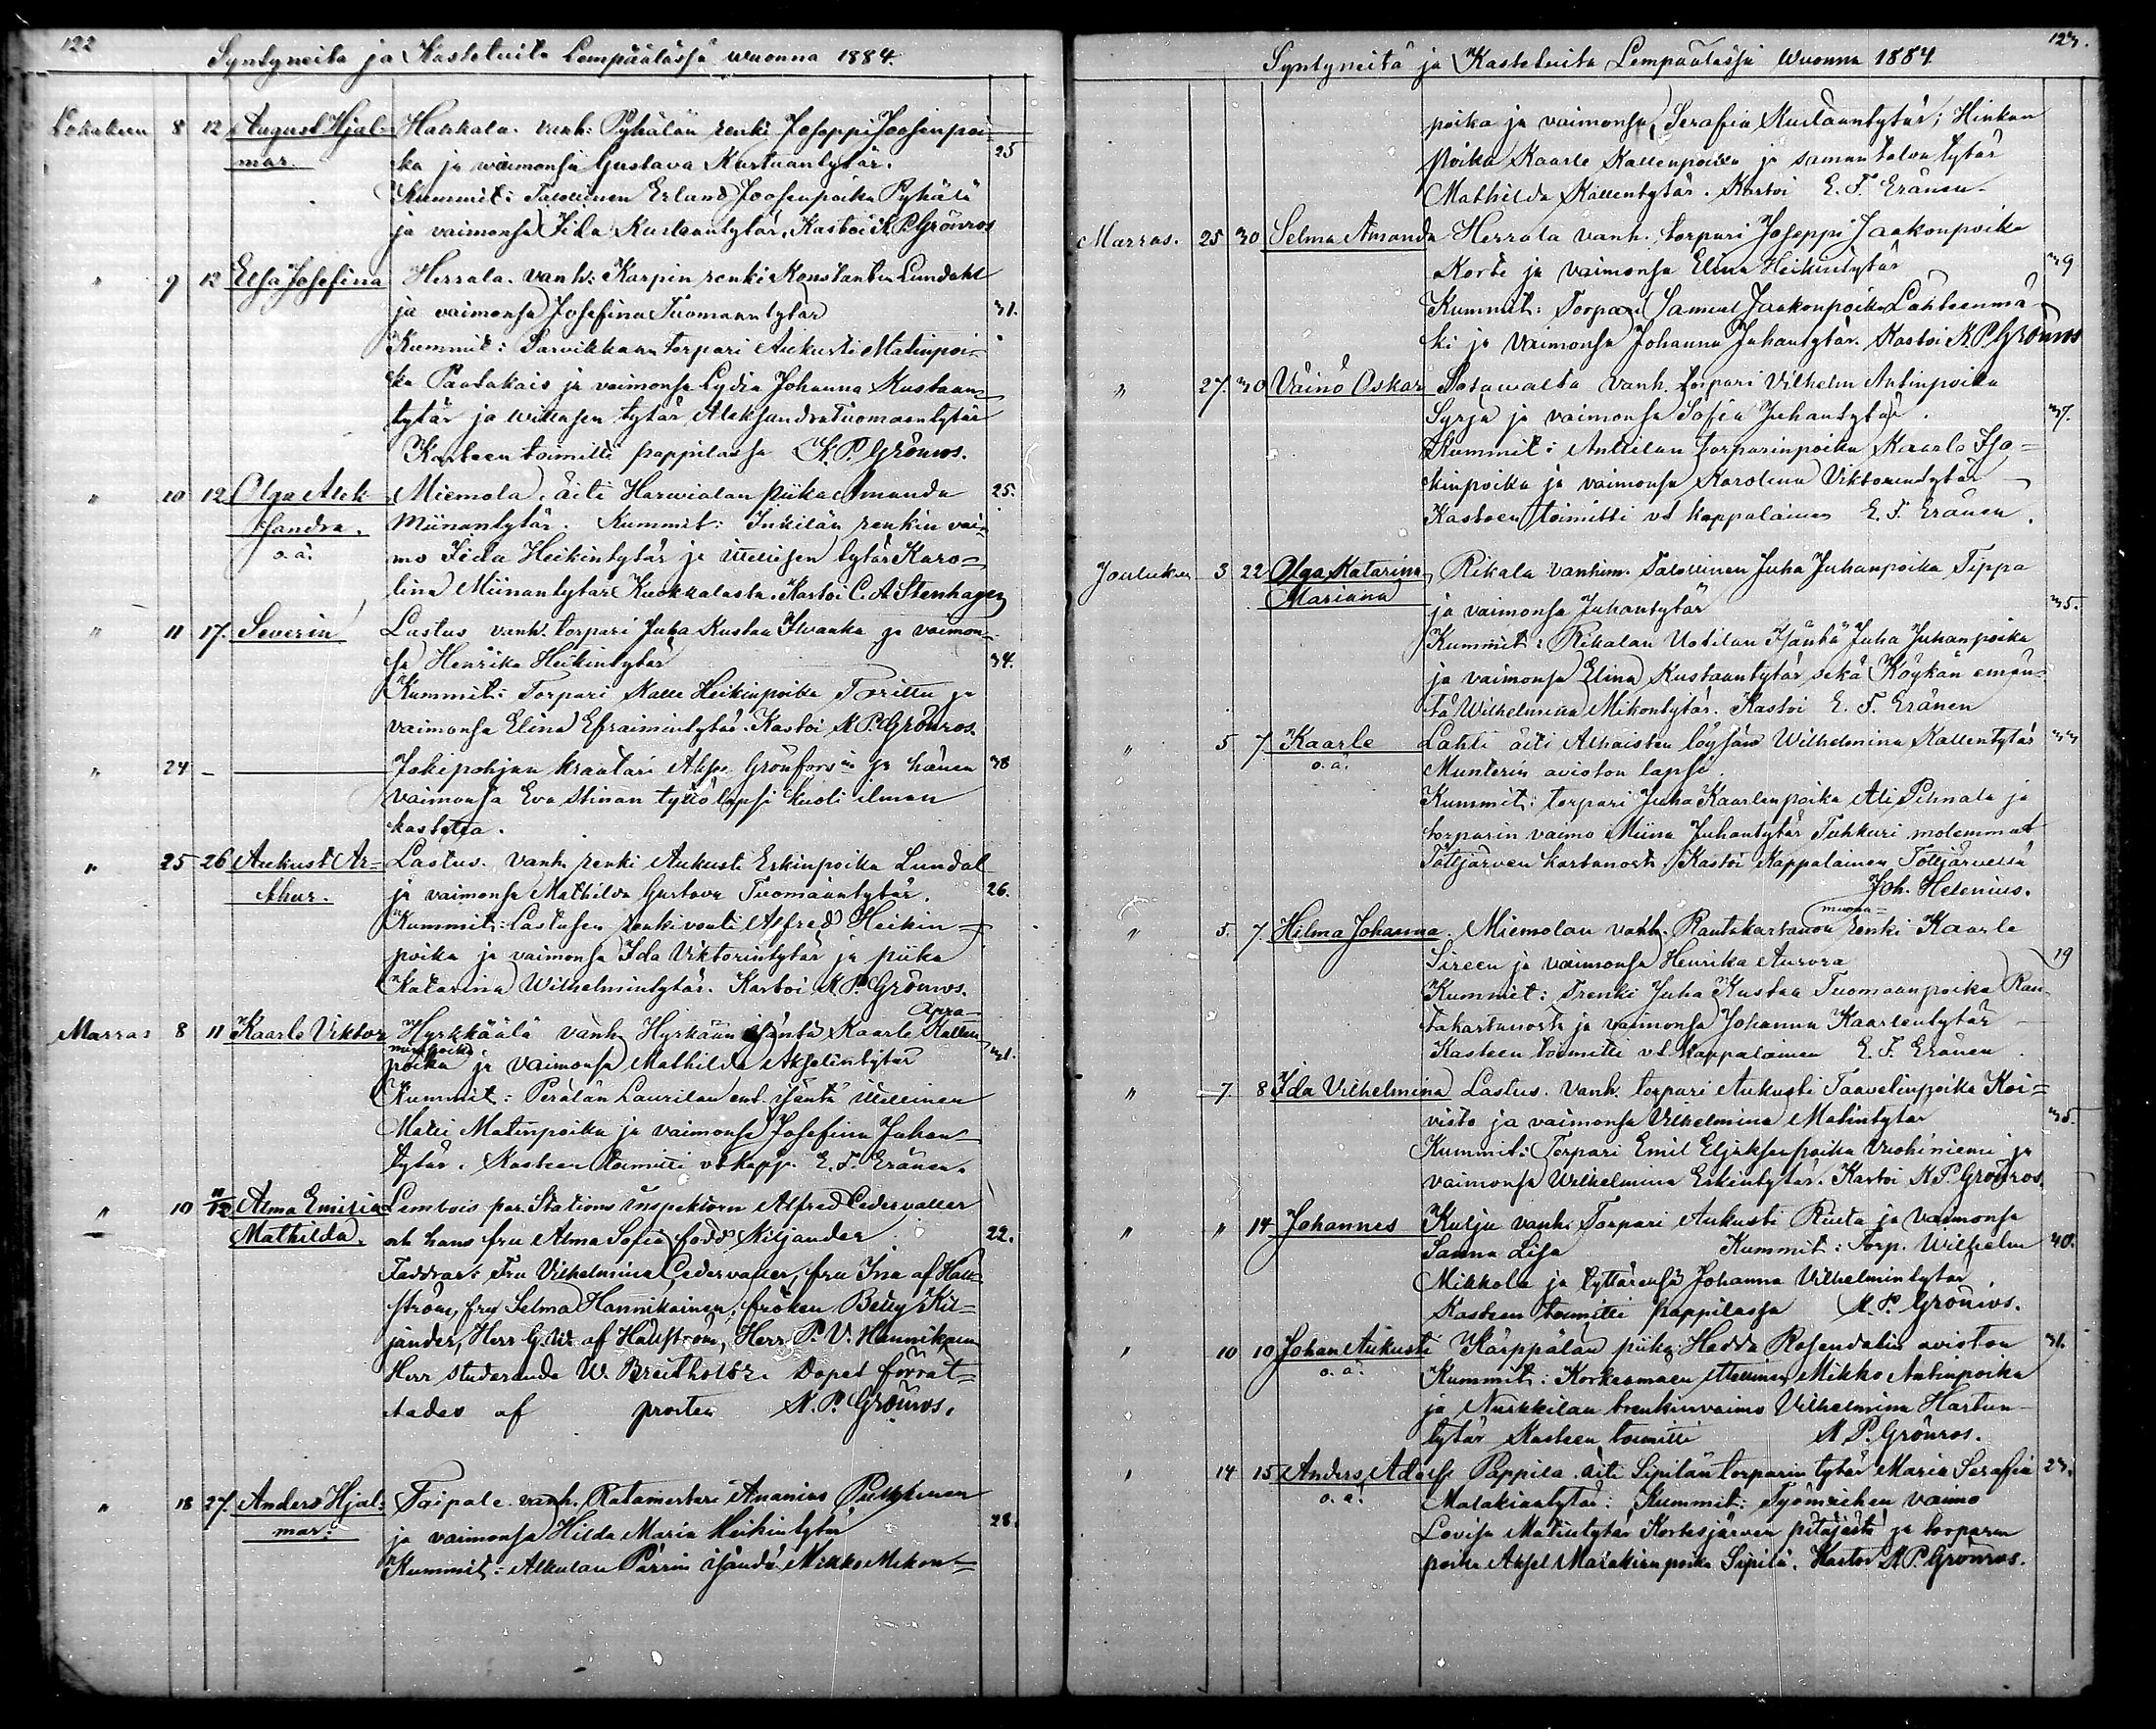 122
Syntyneitä ja Kastetuita Lempäälässä wuonna 1884.
Lokakuun 8 12 August Hjal- Hakkala. vanh: Pyhälän renki Joseppi Joosenpoi-
mar. ka ja vaimonsa Gustava Kustaantytär. 25
Kummit: Talollinen Erland Joosenpoika Pyhälä
ja vaimonsa Fida Kustaantytär. Kastoi K. P. Grönroos
" 9 12 Elsa Josefina Herrala. vanh: Karpin renki Konstantin Lundahl
ja vaimonsa Josefina Tuomaantytär 31.
Kummit: Sarvikkaan torpari Aukusti Matinpoi-
ka Pautakais ja vaimonsa Lydia Johanna Kustaan-
tytär ja ittellisen tytär Aleksandra Tuomaantytär
Kasteen toimitti pappilassa K. P. Grönroos.
" 10 12 Olga Alek- Miemola. äiti Harwialan piika Amanda 25.
sandra. Miinantytär. Kummit: Inkilän renkin vai-
o. ä. mo Fida Heikintytär ja ittellisen tytär Karo-
lina Miinantytär Kuokkalasta. Kastoi C. A. Stenhagen
" 11 17. Severin Lastus vanh. torpari Juha Kustaa Iwanka ja vaimon-
sa Henrika Heikintytär 34.
Kummit: Torpari Kalle Heikinpoika Torittu ja
vaimonsa Elina Efraimintytär. Kastoi K. P. Grönroos.
" 24 - Jokipohjan kraatari Aksel Grönforsin ja hänen 38
vaimonsa Eva Stinan tyttölapsi kuoli ilman
kastetta.
" 25 26 Aukust Ar- Lastus. vanh. renki Aukusti Erkinpoika Lundal
thur. ja vaimonsa Mathilda Gustava Tuomaantytär. 26.
Kummit: Lastusen renkivouti Alfred Heikin-
poika ja vaimonsa Ida Viktorintytär ja piika
Katarina Wilhelmintytär. Kastoi K. P. Grönroos.
Marras 8 11 Kaarle Viktor Hyrkkäälä vanh. Hyrkään isäntä Kaarle Kallen
poika ja vaimonsa Mathilda Akselintytär 31.
Kummit: Perälän Laurilan ent. isäntä ittellinen
Matti Matinpoika ja vaimonsa Josefina Juhan-
tytär. Kasteen toimitti vt kapp. E. F. Eränen.
" 10 11/12 Alma Emilia Lembois par. Stations inspektorn Alfred Cedervaller
Mathilda. och hans fru Alma Sofia född Kiljander 22.
Faddrar: Fru Vilhelmina Cedervaller, fru Ina af Häll-
ström, fru Selma Hannikainen, fröken Betty Kil-
jander, Herr G. W. af Hällström, Herr P. V. Hannikainen
Herr studerande W. Breitholtz. Dopet förrät-
tades af prosten K. P. Grönroos.
" 18 27. Anders Hjal- Taipale. vanh. Ratamestari Ananias Pulkkinen
mar: ja vaimonsa Hilda Maria Heikintytär 28.
Kummit: Alkulan Pärrin isäntä Mikko Mikon-
123.
Syntyneitä ja Kastetuita Lempäälässä Wuonna 1884
poika ja vaimonsa Serafia Kustaantytär; Hinkan
poika Kaarle Kallenpoika ja saman talon tytär
Mathilda Kallentytär. Kastoi E. F. Eränen.
Marras. 25 30 Selma Amanda Herrala vanh. torpari Joseppi Jaakonpoika
Korte ja vaimonsa Elina Heikintytär 39
Kummit: Torpari Samuel Jaakonpoika Lähteenmä-
ki ja vaimonsa Johanna Juhantytär. Kastoi K. P. Grönroos
" 27. 30 Väinö Oskar Sotawalta vanh. torpari Vilhelm Antinpoika
Syrjä ja vaimonsa Sofia Juhantytär. 37.
Kummit: Anttilan torparinpoika Kaarle Iso-
kinpoika ja vaimonsa Karolina Viktorintytär
Kasteen toimitti vt kappalainen E. F. Eränen.
Joulukuu 3 22 Olga Katarina Rikala vanhim. Talollinen Juha Juhanpoika Tippa
Mariana ja vaimonsa Juhantytär 35.
Kummit: Rikalan Uotilan Isäntä Juha Juhanpoika
ja vaimonsa Elina Kustaantytär sekä Köykän emän-
tä Wilhelmina Mikontytär. Kastoi E. F. Eränen
" 5 7. Kaarle Lahti äiti Alhaisten löysän Wilhelmina Kallentytär 33
o. ä. Munterin avioton lapsi.
Kummit: torpari Juha Kaarlenpoika Ali Pihnala ja
torparin vaimo Miina Juhantytär Tuhkuri molemmat
Tottijärven kartanosta. Kastoi Kappalainen Tottijärvellä
Joh. Helenius.
" 5. 7. Hilma Johanna. Miemolan vanh. Rautakartanon muona- renki Kaarle
Sireen ja vaimonsa Henrika Aurora 19
Kummit: Trenki Juha Kustaa Tuomaanpoika Rau-
takartanosta ja vaimonsa Johanna Kaarlentytär
Kasteen toimitti vt kappalainen E. F. Eränen.
" 7 8 Ida Vilhelmina Lastus. vanh. torpari Aukusti Taavetinpoika Koi-
visto ja vaimonsa Vilhelmina Matintytär 35.
Kummit: Torpari Emil Eljaksenpoika Vuohiniemi ja
vaimonsa Wilhelmina Erkintytär. Kastoi K. P. Grönroos.
" " 14 Johannes Kulju vanh. Torpari Aukusti Ruta ja vaimonsa
Sanna Lisa Kummit: Torp. Wilhelm 40.
Mikkola ja tyttärensä Johanna Vilhelmintytär.
Kasteen toimitti pappilassa K. P. Grönroos.
" 10 10 Johan Aukusti Kärppälän piika Hedda Rosendalin avioton 31.
o. ä. Kummit: Korkeamäen ittellinen Mikko Antinpoika
ja Nurkkilan trenkinvaimo Vilhelmina Hartun-
tytär Kasteen toimitti K. P. Grönroos.
" 14 15 Anders Adolf Pappila. äiti Sipilän torparin tytär Maria Serafia 23.
o. ä. Malakiantytär: Kummit: Työmiehen vaimo
Lovisa Matintytär Kortesjärven pitäjästä ja torparin
poika Aksel Malakianpoika Sipilä. Kastoi K. P. Grönroos.